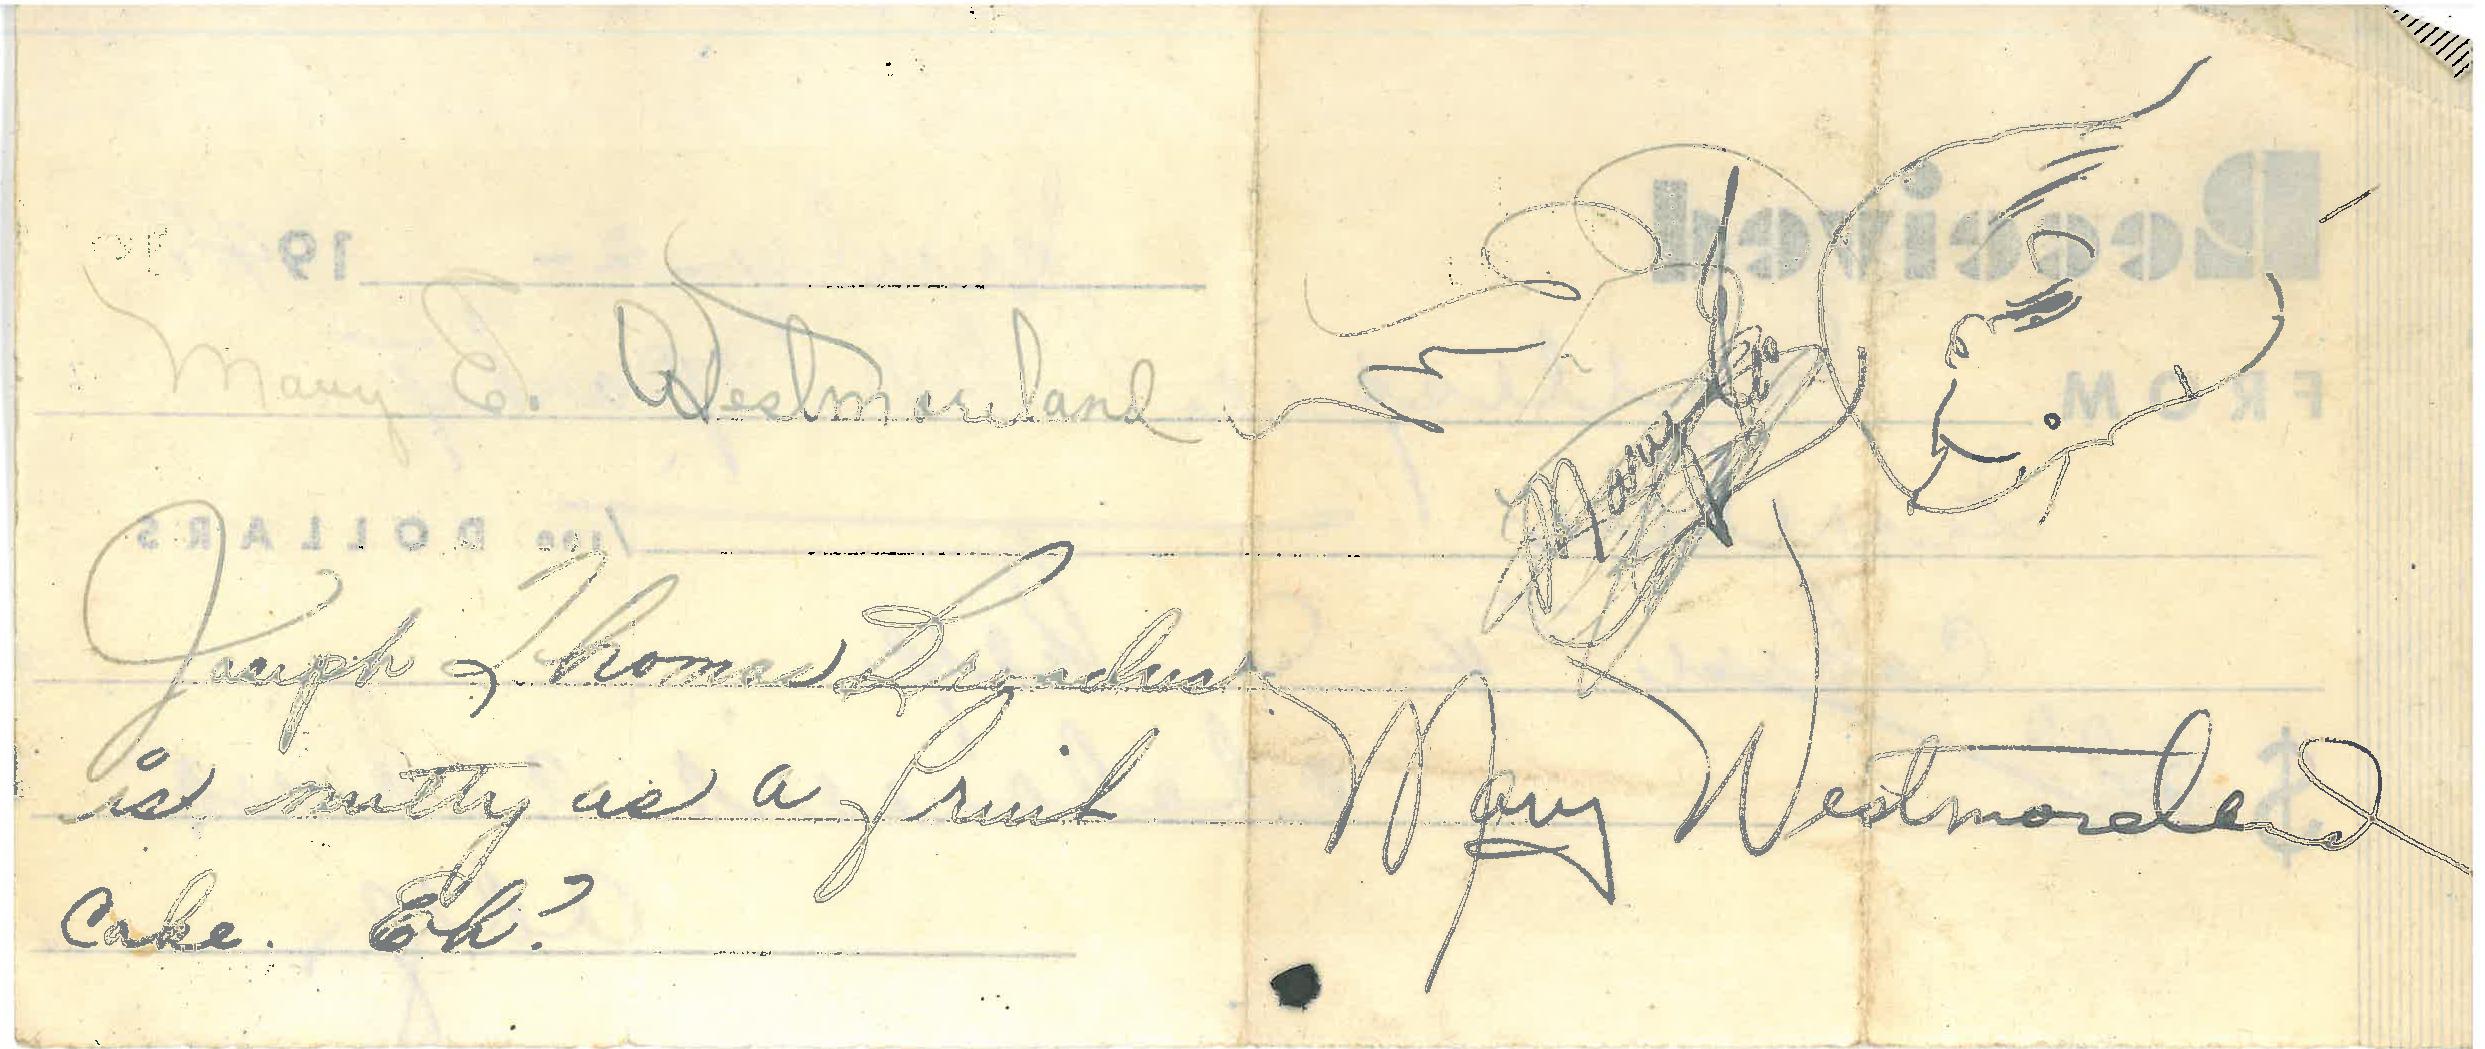 Mary E. Westmoreland
Joseph Thomas
is nutty as a fruit
cake. Eh?
Received
19
FROM
/100 DOLLARS
$
Mary
Mary Westmoreland